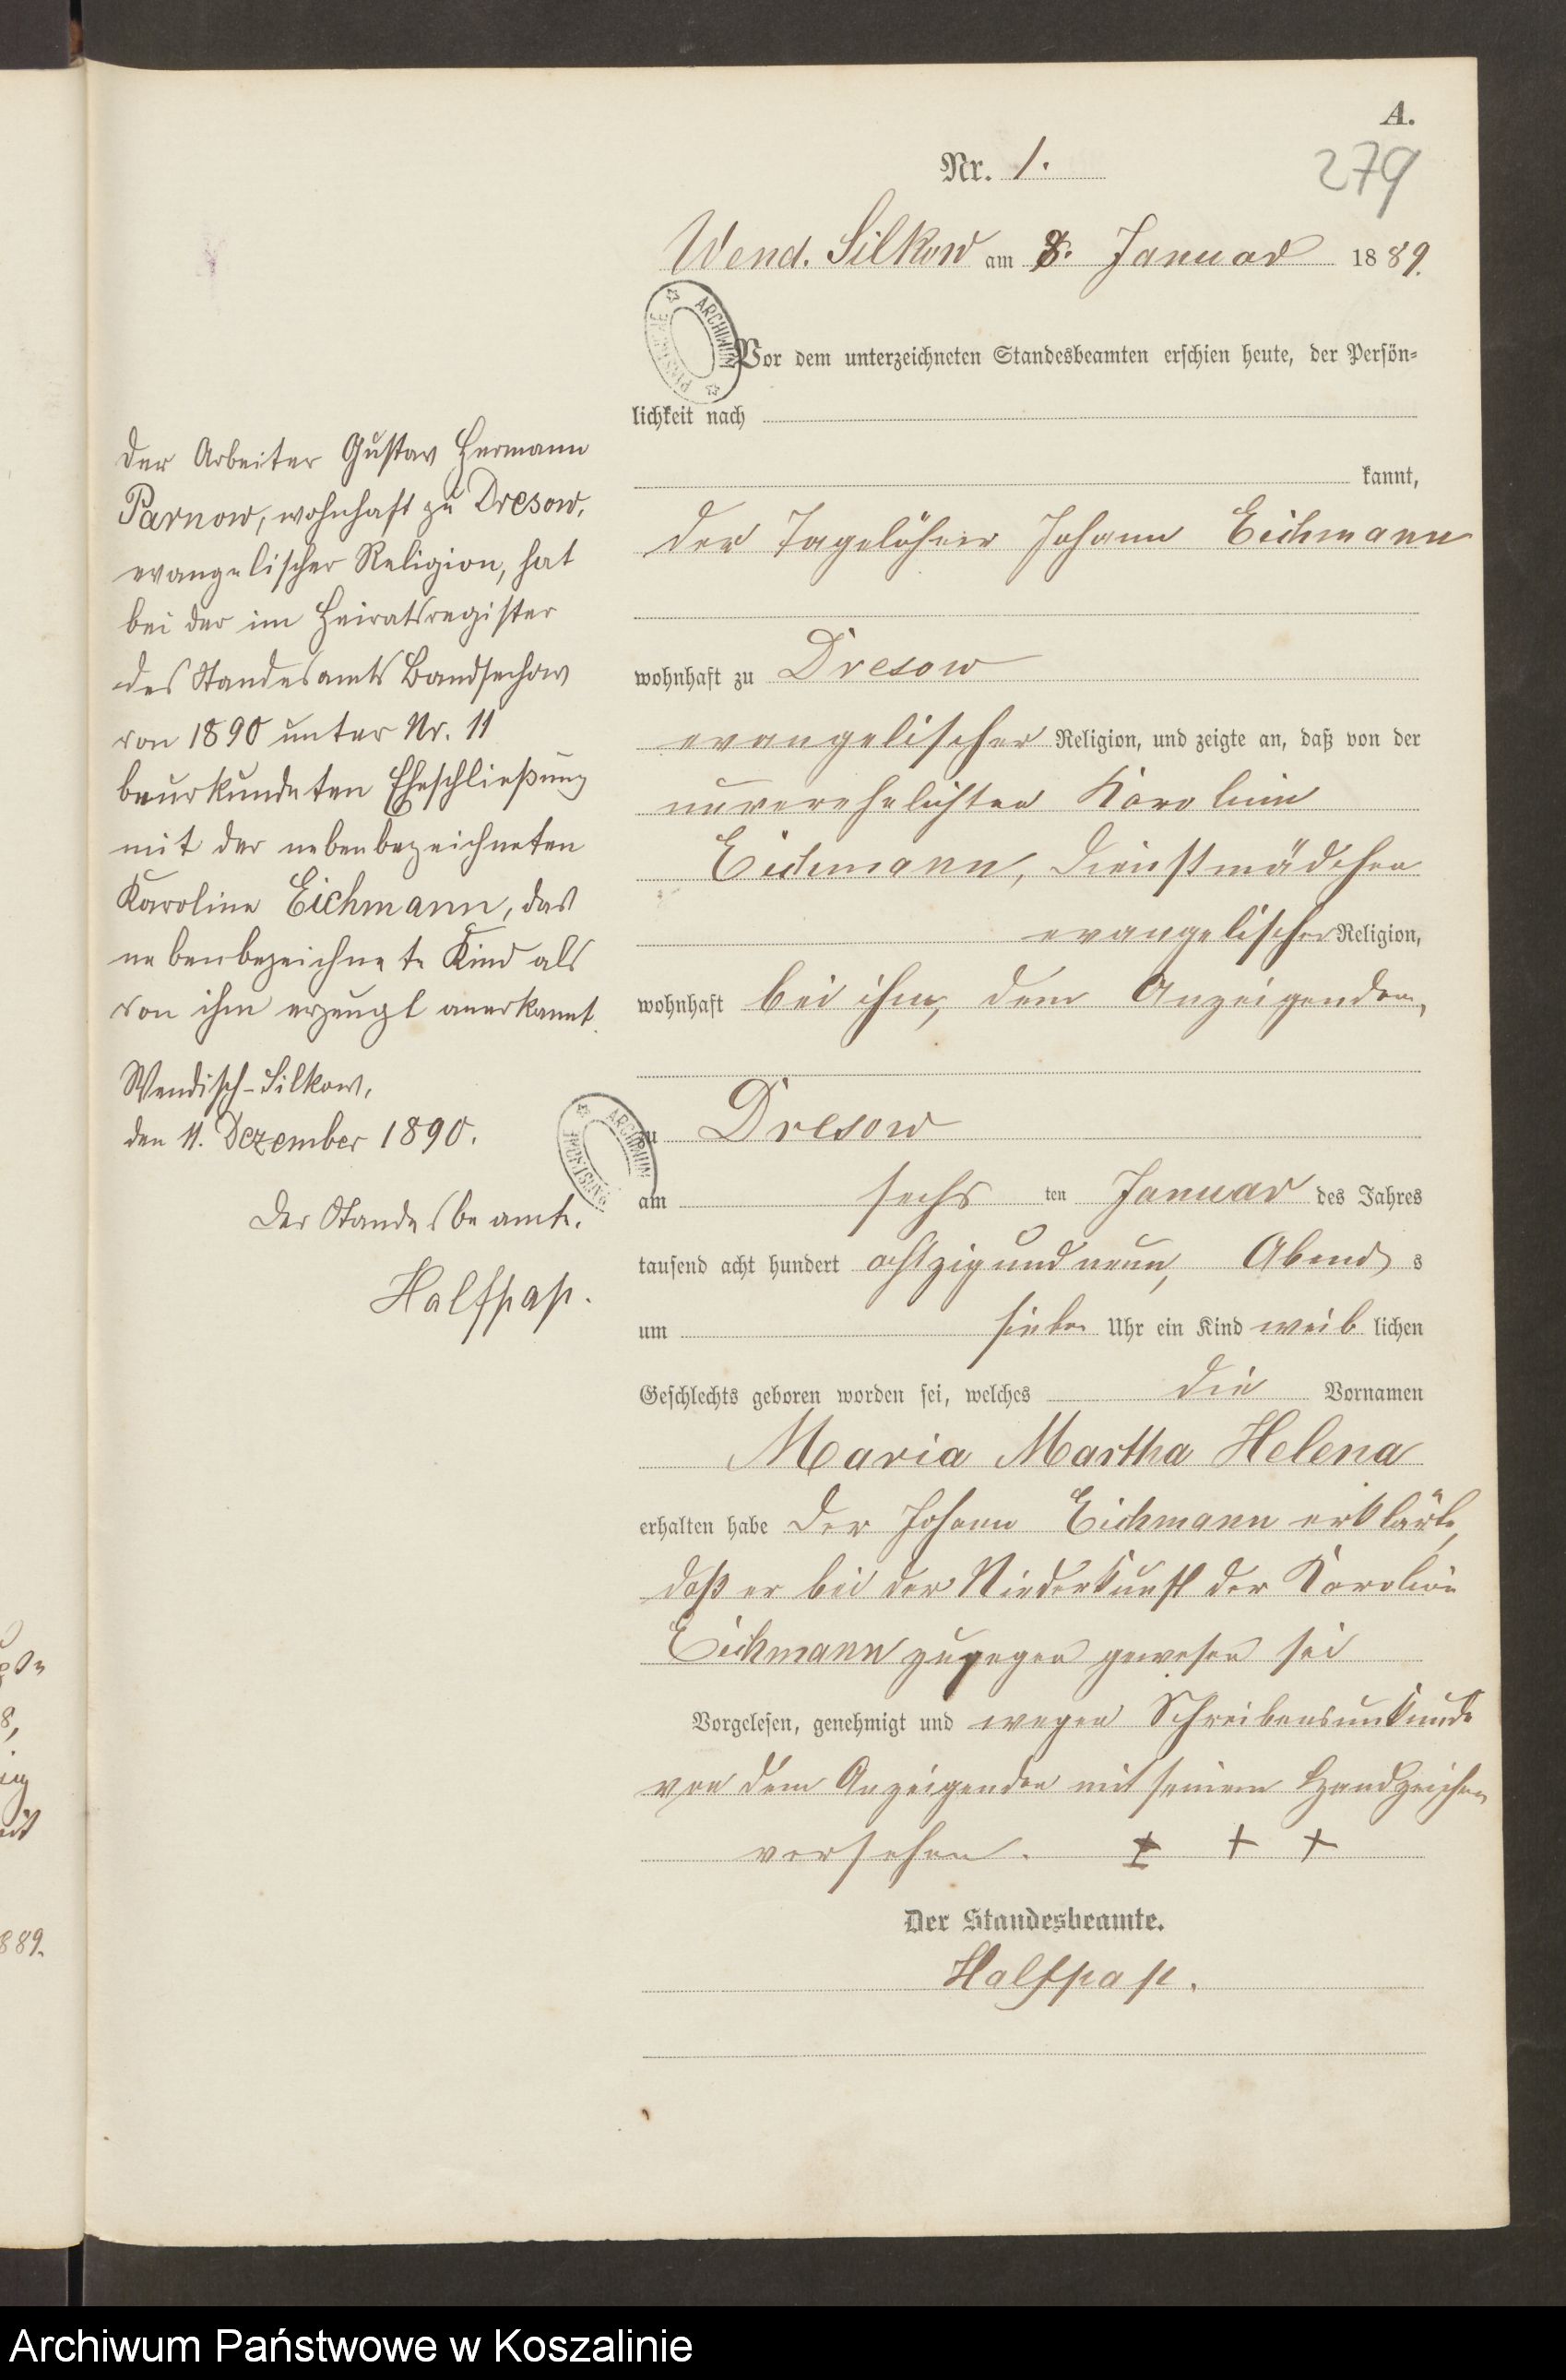 A.
Nr. 1.
279
Wend. Silkow am 8. Januar 1889.
Vor dem unterzeichneten Standesbeamten erschien heute, der Persön-
lichkeit nach
kannt,
der Tagelöhner Johann Eichmann
wohnhaft zu Dresow
evangelischer Religion, und zeigte an, daß von der
unverehelichten Karoline
Eichmann, Dienstmädchen
evangelischer Religion,
wohnhaft bei ihm, dem Anzeigenden,
zu Dresow
am sechs ten Januar des Jahres
tausend acht hundert achtzig und neun, Abend s
um sieben Uhr ein Kind weib lichen
Geschlechts geboren worden sei, welches die Vornamen
Maria Martha Helena
erhalten habe Der Johann Eichmann erklärte,
daß er bei der Niederkunft der Karoline
Eichmann zugegen gewesen sei
Vorgelesen, genehmigt und wegen Schreibensunkunde
von dem Anzeigenden mit seinem Handzeichen
versehen. + + +
Der Standesbeamte.
Halfpap.
Der Arbeiter Gustav Hermann
Parnow, wohnhaft zu Dresow,
evangelischer Religion, hat
bei der im Heiratsregister
des Standesamts Bandsechow
von 1890 unter Nr. 11
beurkundeten Eheschließung
mit der nebenbezeichneten
Karoline Eichmann, das
nebenbezeichnete Kind als
von ihm erzeugt anerkannt.
Wendisch-Silkow,
den 11. Dezember 1890.
Der Standesbeamte.
Halfpap.
ARCHIWUM PAŃSTWOWE
ARCHIWUM PAŃSTWOWE
889.
Archiwum Państwowe w Koszalinie